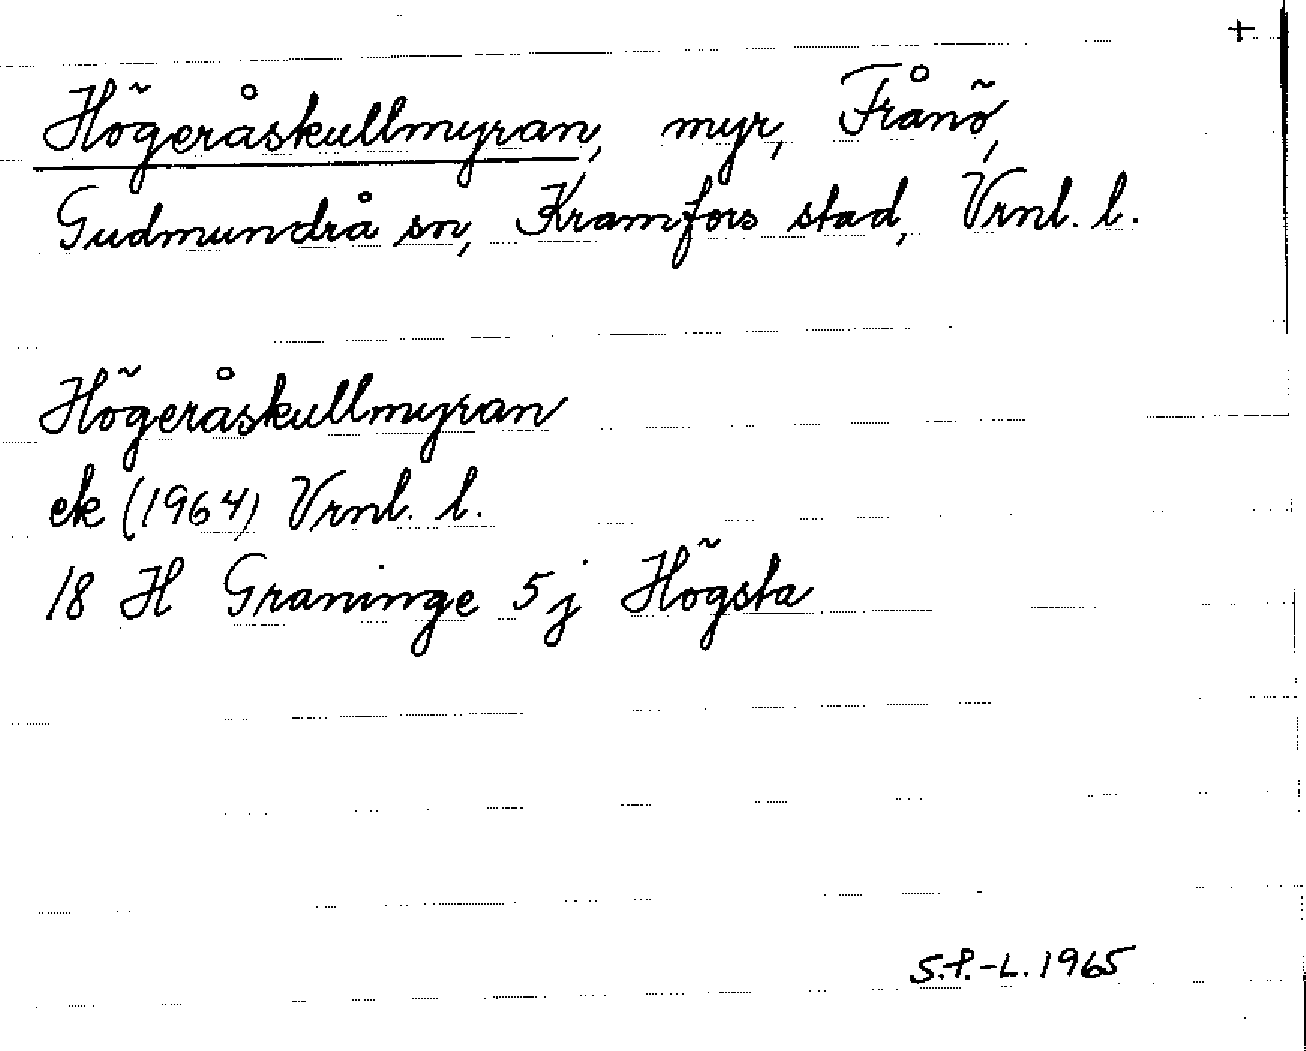 +
Högeråskullmyran, myr, Frånö,
Gudmundrå sn, Kramfors stad, Vrnl. l.
Högeråskullmyran
ek (1964) Vrnl. l.
18 H Graninge 5 j Högsta
S.P.-L. 1965